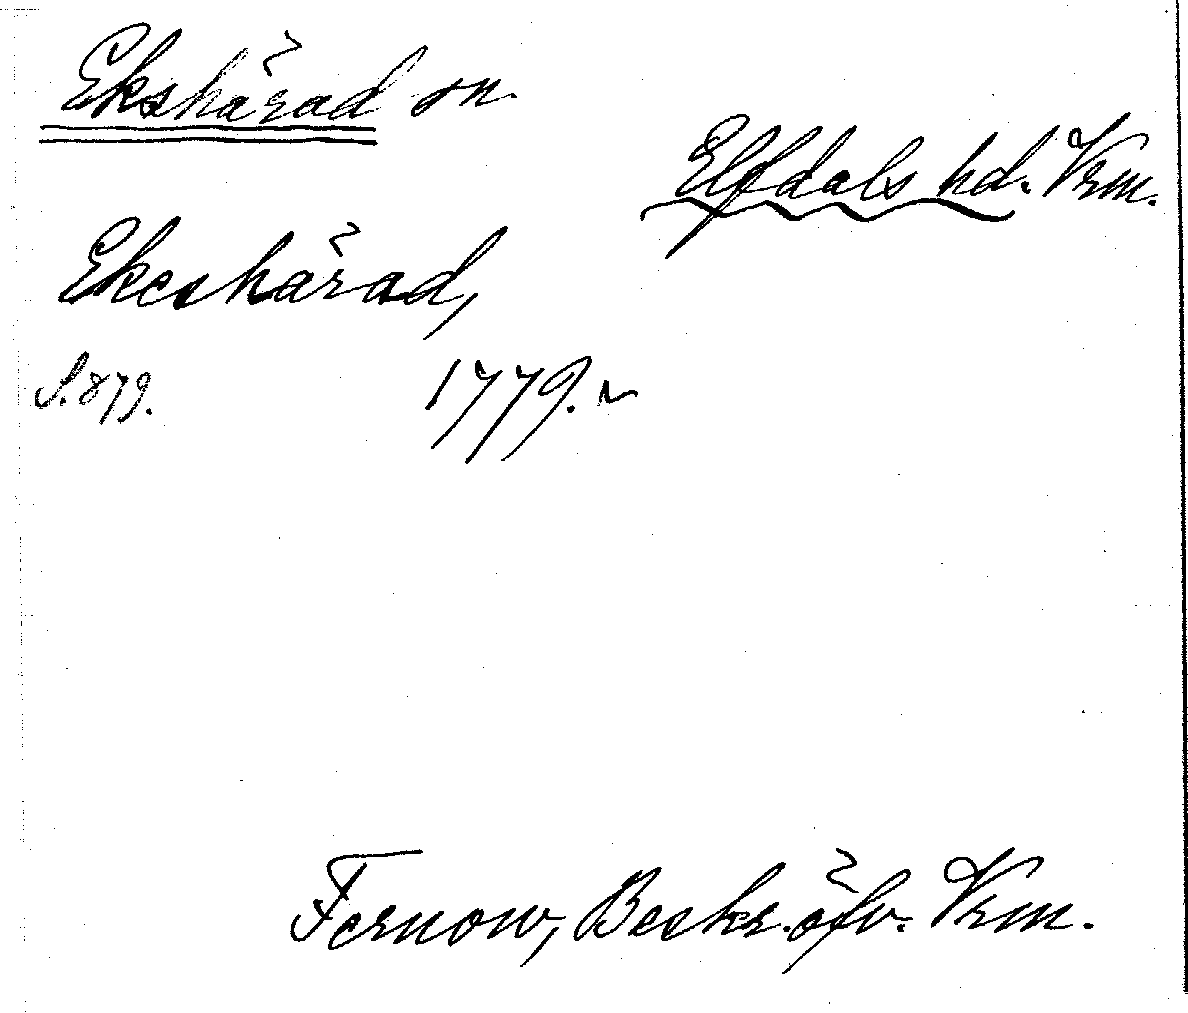 Ekshärad sn.
Elfdals hd. Vrm.
Ekeshärad,
S. 879. 1779. 
Fernow, Beskr. öfv. Vrm.